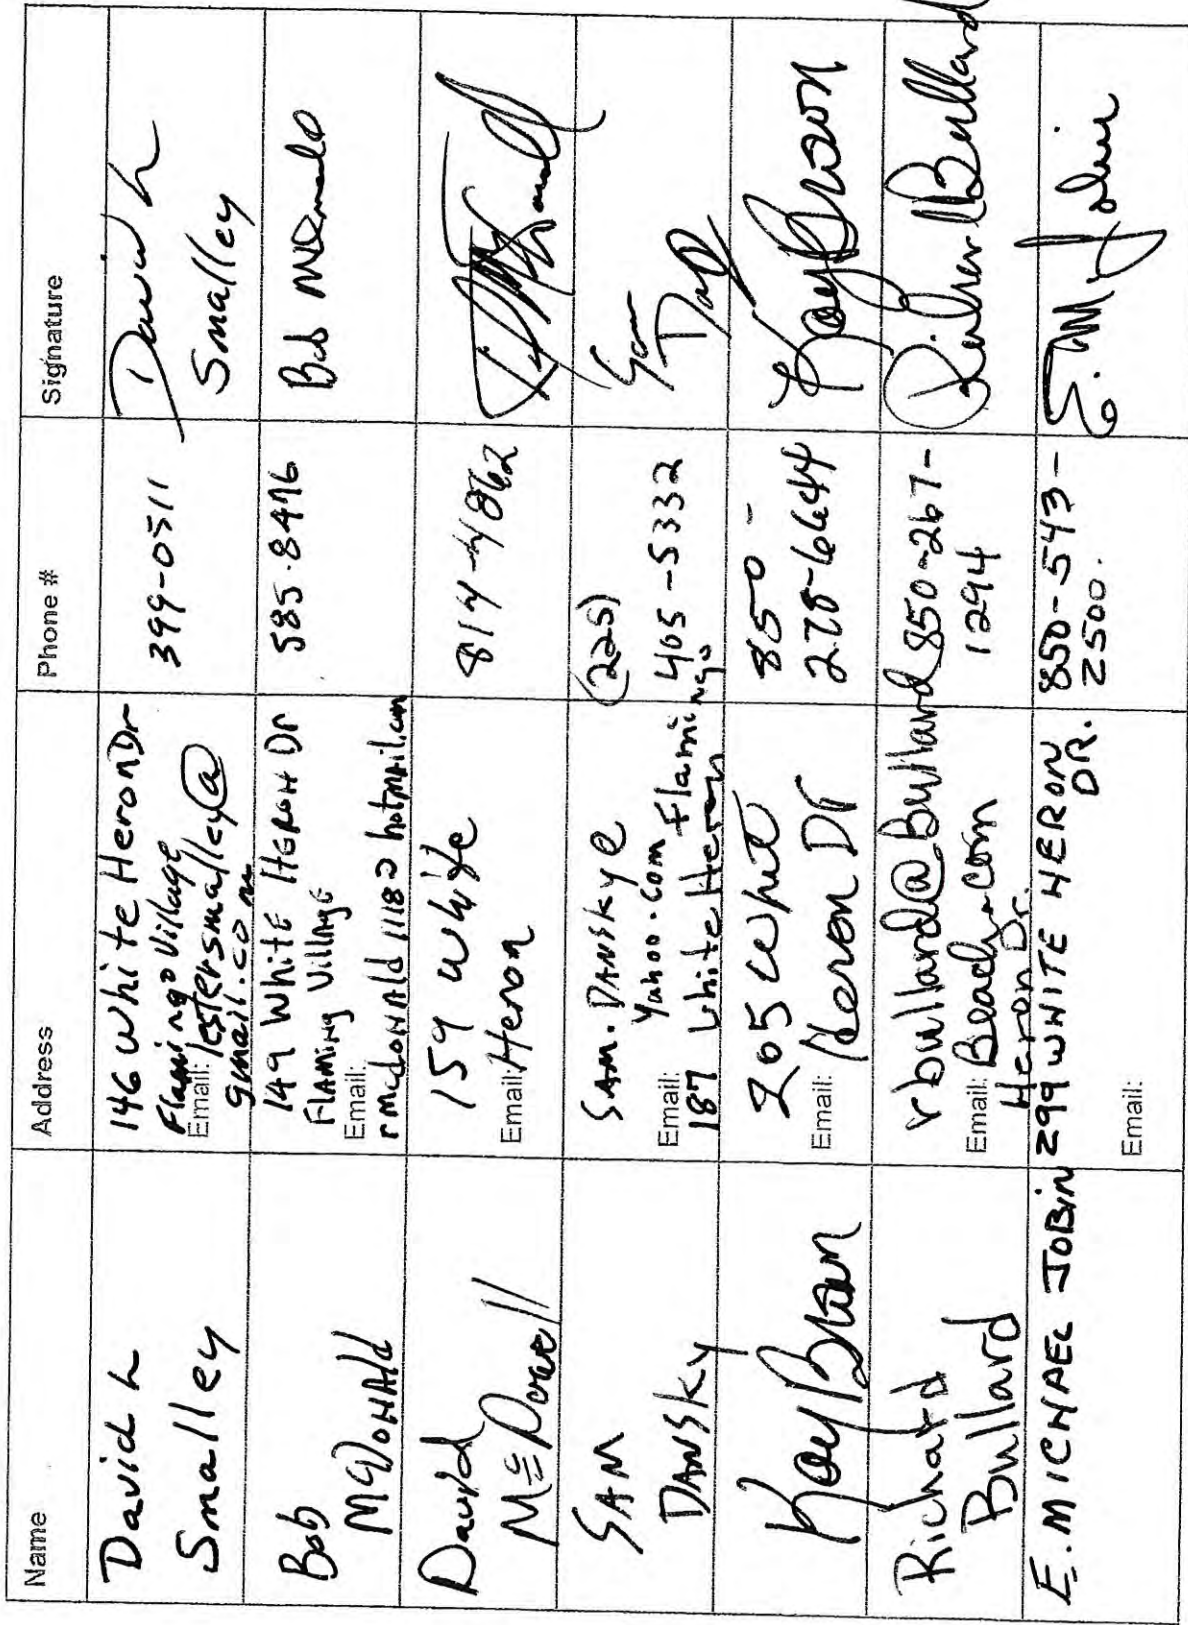 Name Address Phone # Signature
David L
Smalley
146 White Heron Dr
Flamingo Village
Email: lestersmalley@
gmail.com
399-0511
David L
Smalley
Bob
McDonald
149 White Heron Dr
Flaming Village
Email:
rmcdonald1182 hotmail.com
585-8496
Bob McDonald
David
McDowell
159 White
Email: Heron
814-4862
SAM
DANSKY
SAM.DANSKY@
Yahoo.com
Email:
187 White Heron Flamingo
(225)
405-5332
Sam
Kay Brown
205 White
Email: Heron Dr
850-
278-6644
Kay Brown
Richard
Bullard
rbullard@Bullard
Email: Beach.com
Heron Dr.
850-267-
1294
Richard Bullard
E. MICHAEL JOBIN
299 WHITE HERON
DR.
Email:
850-543-
2500.
E. M Jobin